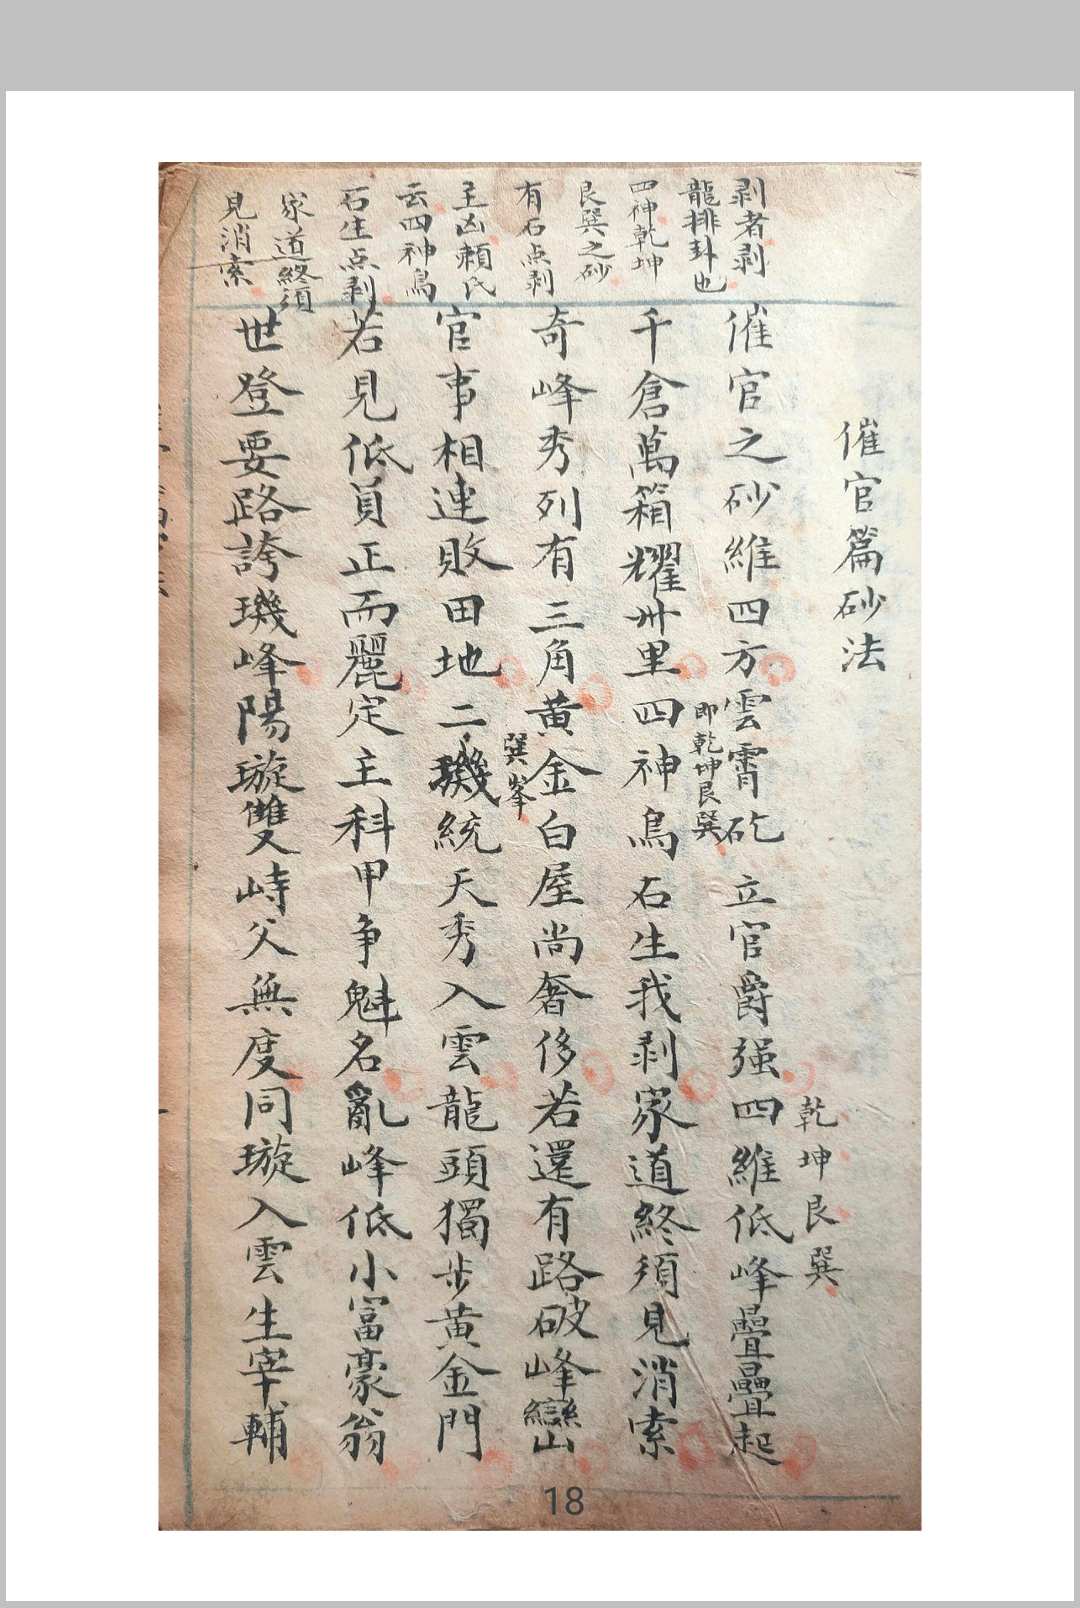 剥者剥
龍排卦也
四神乾坤
艮巽之砂
有石点剥
主凶賴氏
云四神鳥
石生点剥
家道終須
見消索
催官篇砂法
乾坤艮巽
催官之砂維四方雲霄矻立官爵强四維低峰疊疊起
即乾坤艮巽
千倉萬箱耀州里四神鳥石生我剥家道終須見消索
奇峰秀列有三角黄金白屋尚奢侈若還有路破峰巒
巽峯
官事相連敗田地二璣統天秀入雲龍頭獨步黄金門
若見低員正而麗定主科甲争魁名亂峰低小富豪翁
世登要路誇璣峰陽璇雙峙父無度同璇入雲生宰輔
18